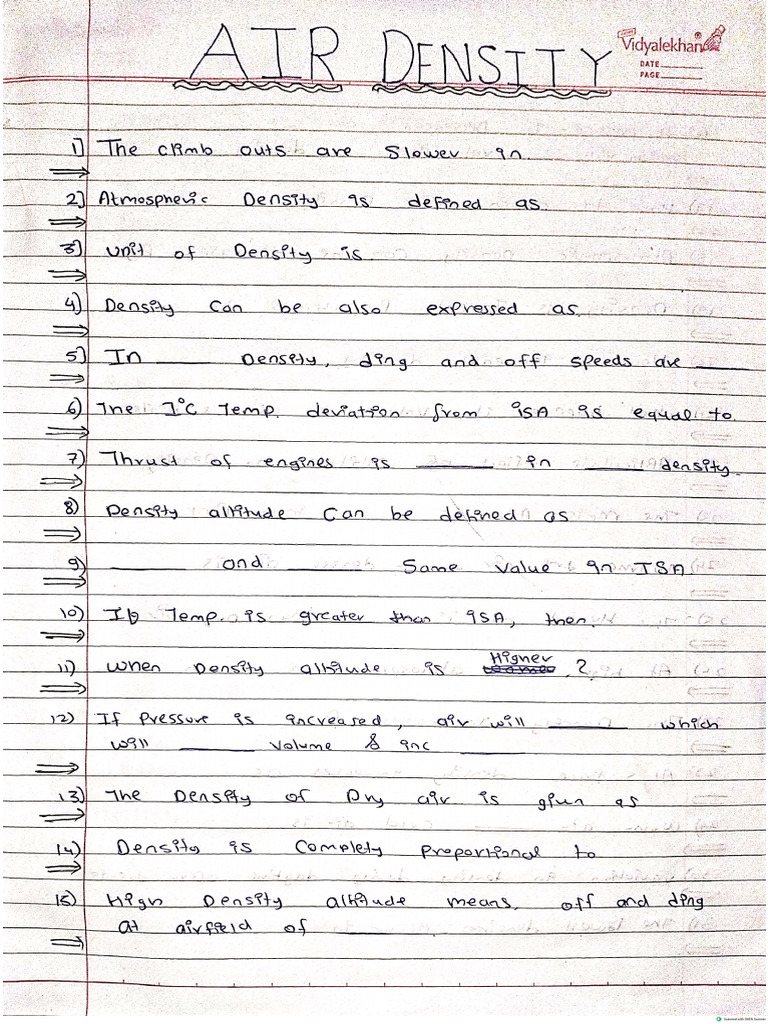 AIR DENSITY
Vidyalekhan
DATE
PAGE
1] The climb outs are slower in
2] Atmospheric Density is defined as
3] unit of Density is
4) Density can be also expressed as
5] In ______ Density, ding and off speeds are ______
6) The 1°C Temp. deviation from ISA is equal to
7) Thrust of engines is ______ in ______ density
8) Density altitude can be defined as
9) ______ and ______ same value in ISA.
10) If Temp. is greater than ISA, then.
11) when Density altitude is Higher ?
12) If Pressure is increased, air will ______ which
will ______ volume & inc ______
13) The Density of Dry air is given as
14) Density is Complety proportional to
15) High Density altitude means, off and ding
at airfield of ______